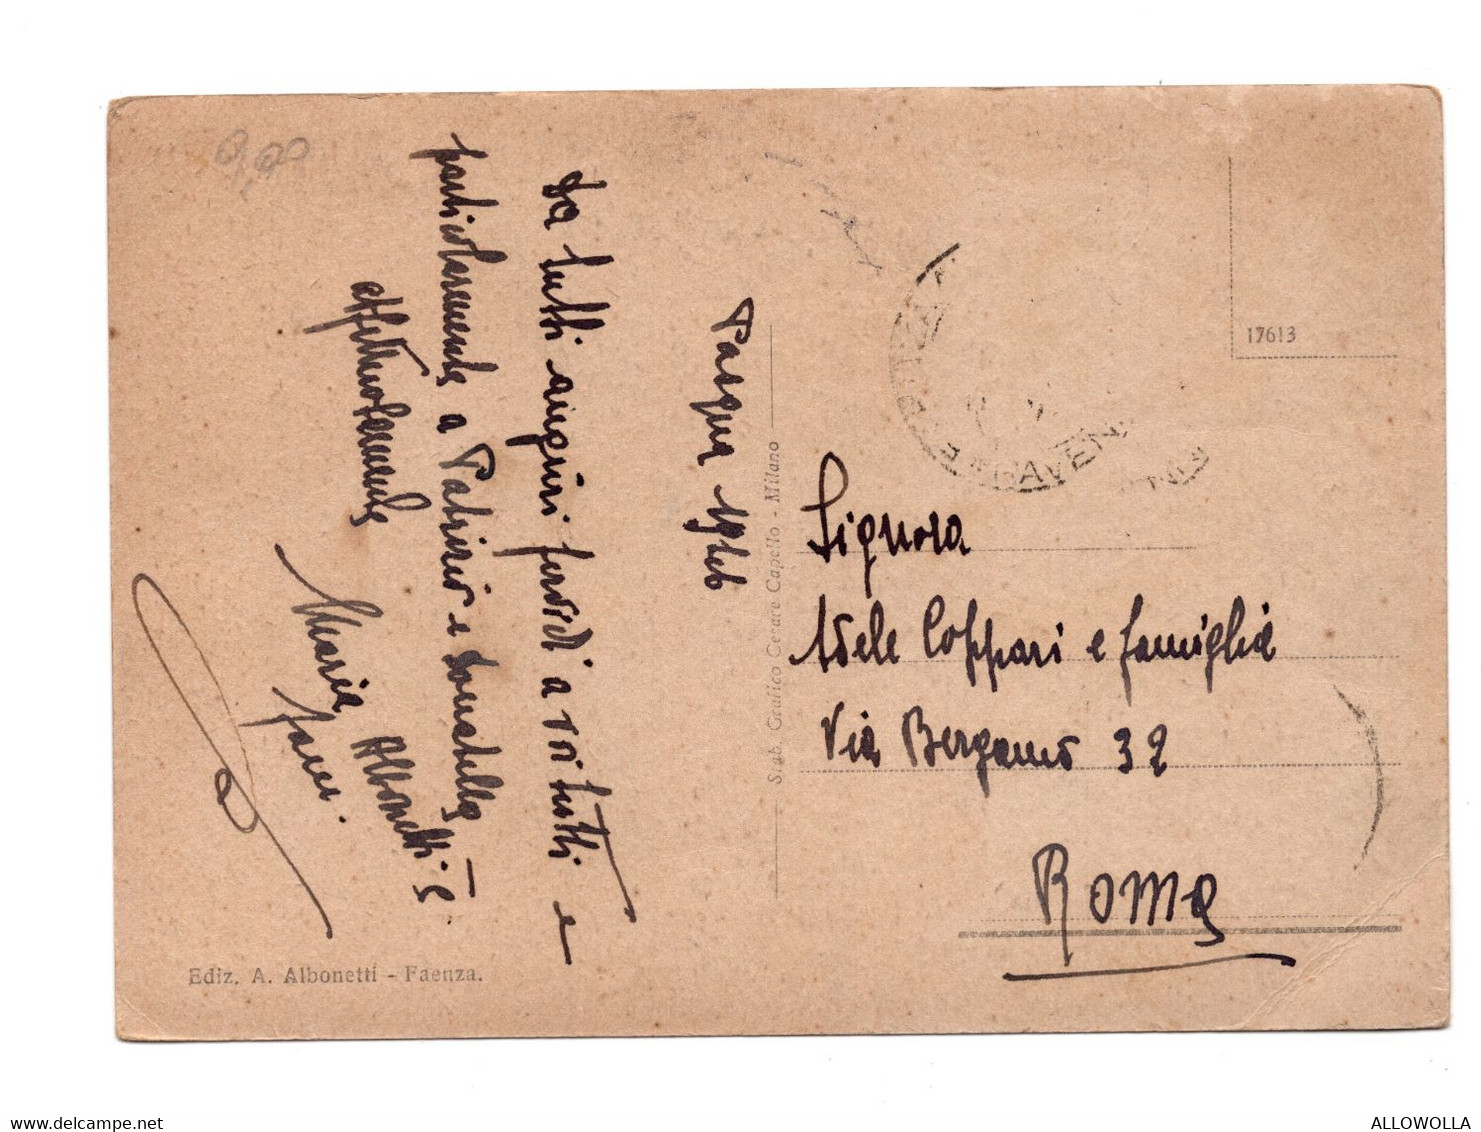 Pasqua 1946
Da tutti auguri fervidi a voi tutti e
particolarmente a Patrizio e Donatella
affettuosamente
Maria Albonetti e
fam.
Ediz. A. Albonetti - Faenza.
Stab. Grafico Cesare Capello - Milano
17613
RAVEN
Signora
Adele Coppari e famiglia
Via Bergamo 32
Roma
www.delcampe.net
ALLOWOLLA